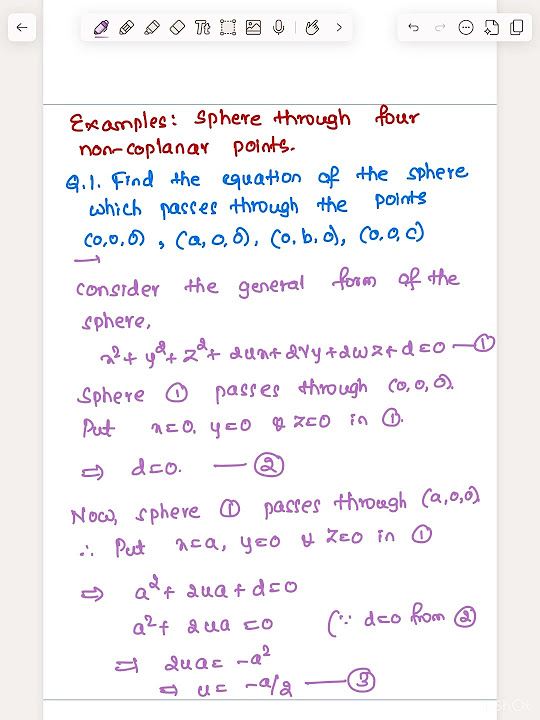 Tt
Examples: Sphere through four
non-coplanar points.
Q.1. Find the equation of the sphere
which passes through the points
(0,0,0), (a,0,0), (0,b,0), (0,0,c)
→
Consider the general form of the
sphere,
x²+ y²+ z²+ 2ux+2vy+2wz+d=0 —①
Sphere ① passes through (0,0,0).
Put x=0, y=0 & z=0 in ①.
⇒ d=0. —②
Now, sphere ① passes through (a,0,0)
∴ Put x=a, y=0 & z=0 in ①
⇒ a²+ 2ua+d=0
a²+ 2ua =0 (∵ d=0 from ②
⇒ 2ua= -a²
⇒ u= -a/2 —③